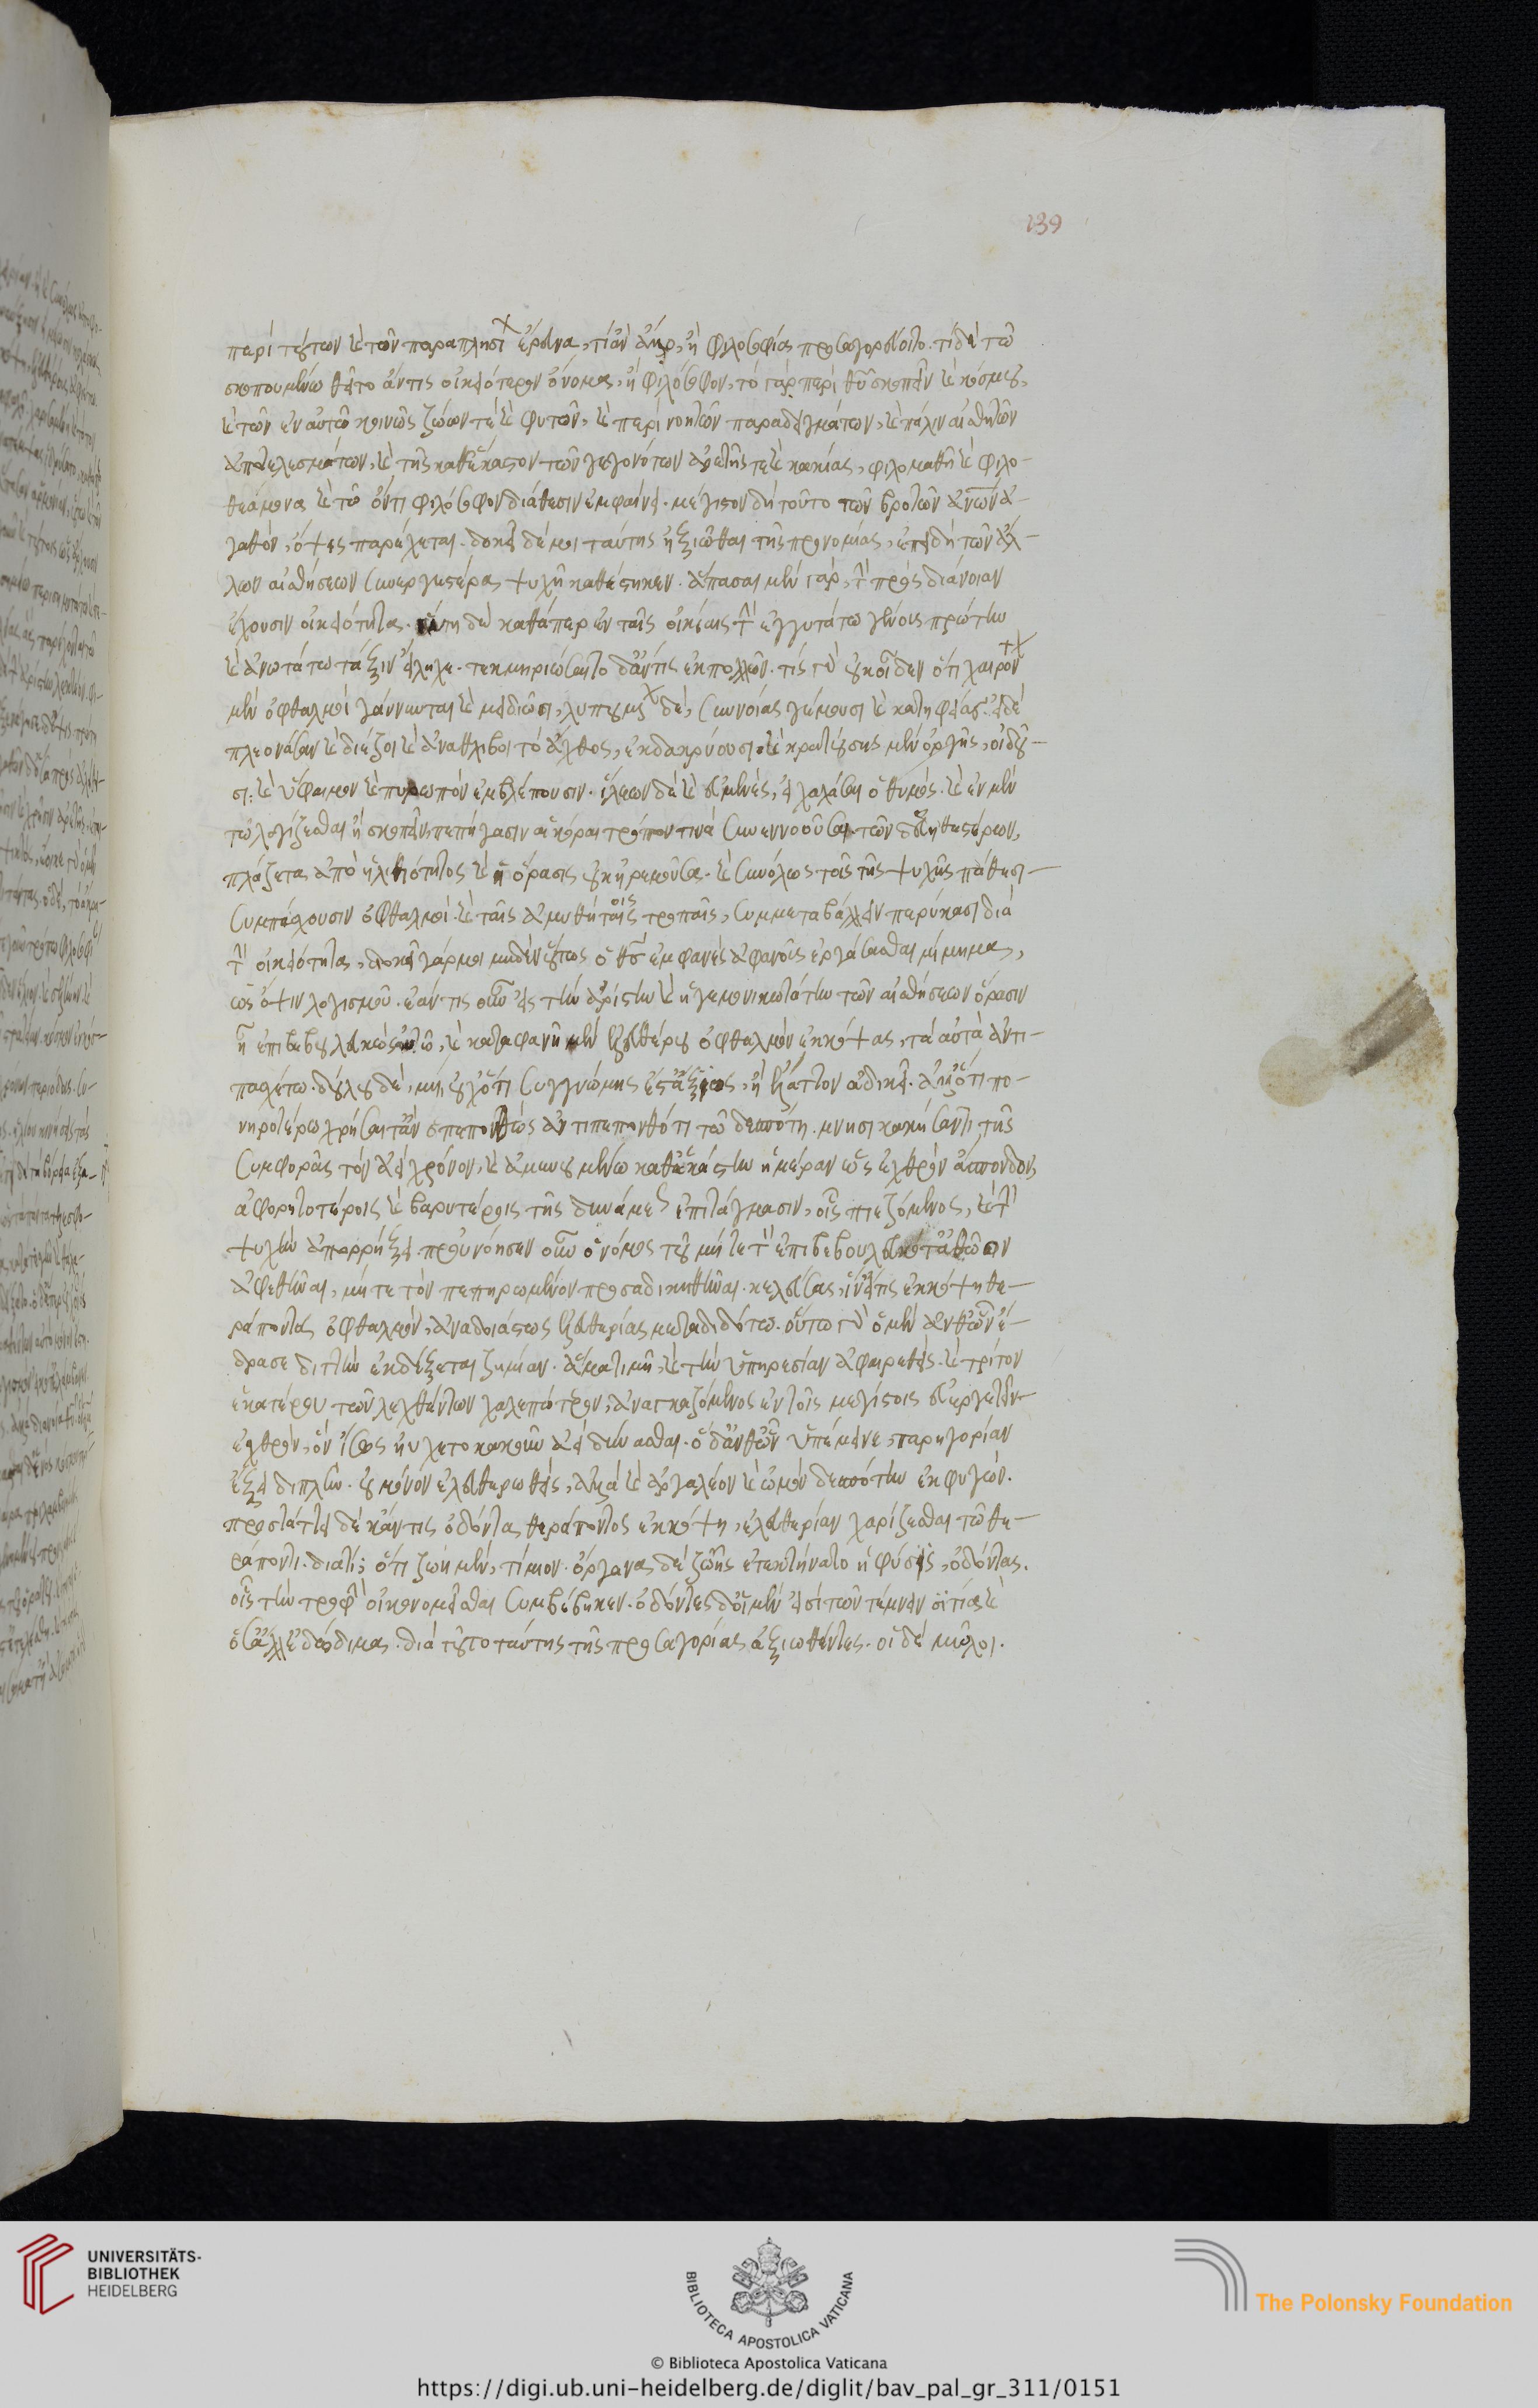 139
περὶ τούτων καὶ τῶν παραπλησίων ἔρευναν, τί ἂν ἄλλο, ἢ φιλοσοφίαν προσαγορεύοιτο. τί δὲ τῶ
σκοπουμένω θεῖτο ἄν τις οἰκειότερον ὄνομα, ἢ φιλόσοφον, τὸ γὰρ περὶ θεοῦ σκοπεῖν καὶ κόσμου,
καὶ τῶν ἐν αὐτῶ κοινῶς ζώων τὲ καὶ φυτῶν, καὶ περὶ νοητῶν παραδειγμάτων, καὶ πάλιν αἰσθητῶν
ἀποτελεσμάτων, καὶ τῆς καθέκαστον τῶν γεγονότων ἀρετῆς τε καὶ κακίας, φιλομαθῆ καὶ φιλο-
θεάμονα καὶ τῶ ὄντι φιλόσοφον διάθεσιν ἐμφαίνει. μέγιστον δὴ τοῦτο τῶν βροτῶν ἀνθρώπων ἀ-
γαθὸν, ὄψις παρέχεται. δοκεῖ δέ μοι ταύτης ἠξιῶσθαι τῆς προνομίας, ἐπειδὴ τῶν ἄλ-
λων αἰσθήσεων συνεργεστέρα ψυχῆ καθέστηκεν. ἅπασαι μὲν γὰρ, τὴν πρὸς διάνοιαν
ἔχουσιν οἰκειότητα. αὕτη δὲ καθάπερ ἐν ταῖς οἰκίαις τὴν ἐγγυτάτω γένους πρώτην
καὶ ἀνωτάτω τάξιν εἴληχε. τεκμηριώσαιτο δ' ἄν τις ἐκ πολλῶν. τίς γὰρ οὐκ οἶδεν ὅτι χαιρόντων
μὲν ὀφθαλμοὶ γάννυνται καὶ μειδιῶσι, λυπουμένων δὲ, συννοίας γέμουσι καὶ κατηφείας. εἰ δὲ
πλεονάσαν καὶ διέζοι καὶ ἀναθλίβοι τὸ ἄχθος, ἐκδακρύουσι, καὶ κρατούσης μὲν ὀργῆς, οἰδοῦ-
σι: καὶ ὕφαιμον καὶ πυρωπὸν ἐμβλέπουσιν. ἵλεων δὲ καὶ εὐμενὲς, εἰ χαλάσαι ὁ θυμός. καὶ ἐν μὲν
τῶ λογίζεσθαι ἢ σκοπεῖν, πεπήγασιν αἱ κόραι τρόπον τινὰ συνεννοοῦσαι, τῶν δ' εὐηθεστέρων,
πλάζεται ἀπὸ ἠλιθιότητος καὶ ἡ ὅρασις οὐκ ἠρεμοῦσα. καὶ συνόλως τοῖς τῆς ψυχῆς πάθεσι
συμπάσχουσιν ὀφθαλμοί. καὶ ταῖς ἀμυθήτοις τροπαῖς, συμμεταβάλλειν πεφύκασι διὰ
τὴν οἰκειότητα. δοκεῖ γάρ μοι μηδὲν οὕτως ὁ θεὸς ἐμφανὲς ἀφανοῦς ἐργάσασθαι μίμημα,
ὡς ὄψιν λογισμοῦ. ἐὰν τις οὖν εἰς τὴν ἀρίστην καὶ ἡγεμονικωτάτην τῶν αἰσθήσεων ὅρασιν
ἦ ἐπιβεβουλευκὼς αὐτῶ, καὶ καταφανῆ μὲν ἐλευθέρου ὀφθαλμὸν ἐκκόψας, τὰ αὐτὰ ἀντι-
πασχέτω. δούλου δὲ, μή. οὐχ ὅτι συγγνώμης ἐστ' ἄξιος, ἢ ἔλαττον ἀδικεῖ. ἀλλ' ὅτι πο-
νηροτέρω χρήσαιτ' ἂν ὁ πεπονθὼς ἀντιπεπονθότι τῶ δεσπότη. μνησικακήσαντι τῆς
συμφορᾶς τὸν ἀεὶ χρόνον, καὶ ἀμυνουμένω καθ' ἑκάστην ἡμέραν ὡς ἐχθρὸν ἄσπονδον,
ἀφορητοτέροις καὶ βαρυτέροις τῆς δυνάμεως ἐπιτάγμασιν, οἷς πιεζόμενος, καὶ τὴν
ψυχὴν ἀπορρήξει. προὐνόησεν οὖν ὁ νόμος τοῦ μήτε τὸν ἐπιβεβουλευκότ' ἀθῶον
ἀφεθῆναι, μήτε τὸν πεπηρωμένον προσαδικηθῆναι. κελεύσας, ἵν' εἴ τις ἐκκόψη θε-
ράποντας ὀφθαλμὸν, ἀναδοιάστως ἐλευθερίας μεταδιδότω. οὕτω γὰρ ὁ μὲν ἀνθ' ὧν ἔ-
δρασε διττὴν ἐκδέξεται ζημίαν. ἅμα τιμῆ, καὶ τὴν ὑπηρεσίαν ἀφαιρεθείς. καὶ τρίτον
ἑκατέρου τῶν λεχθέντων χαλεπώτερον, ἀναγκαζόμενος ἐν τοῖς μεγίστοις εὐεργετεῖν
ἐχθρὸν, ὃν ἴσως ηὔχετο κακοῦν ἀεὶ δύνασθαι. ὁ δ' ἀνθ' ὧν ὑπέμεινε, παρηγορίαν
ἕξει διπλῆν. οὐ μόνον ἐλευθερωθεὶς, ἀλλὰ καὶ ἀργαλέον καὶ ὠμὸν δεσπότην ἐκφυγών.
προστάττει δὲ κἄν τις ὀδόντας θεράποντος ἐκκόψη, ἐλευθερίαν χαρίζεσθαι τῶ θε-
ράποντι. διατί; ὅτι ζωὴ μὲν, τίμιον. ὄργανα δὲ ζωῆς ἐτεκτήνατο ἡ φύσις, ὀδόντας.
οἷς τὴν τροφὴν οἰκονομεῖσθαι συμβέβηκεν. ὀδόντες δ' οἱ μέν εἰσὶ τῶν τέμνειν σιτία καὶ
ὅσα ἄλλ' ἐδώδιμα. διὰ τοῦτο ταύτης τῆς προσαγορίας ἀξιωθέντες. οἱ δὲ μύλοι.
UNIVERSITÄTS-
BIBLIOTHEK
HEIDELBERG
BIBLIOTECA APOSTOLICA VATICANA
The Polonsky Foundation
© Biblioteca Apostolica Vaticana
https://digi.ub.uni-heidelberg.de/diglit/bav_pal_gr_311/0151